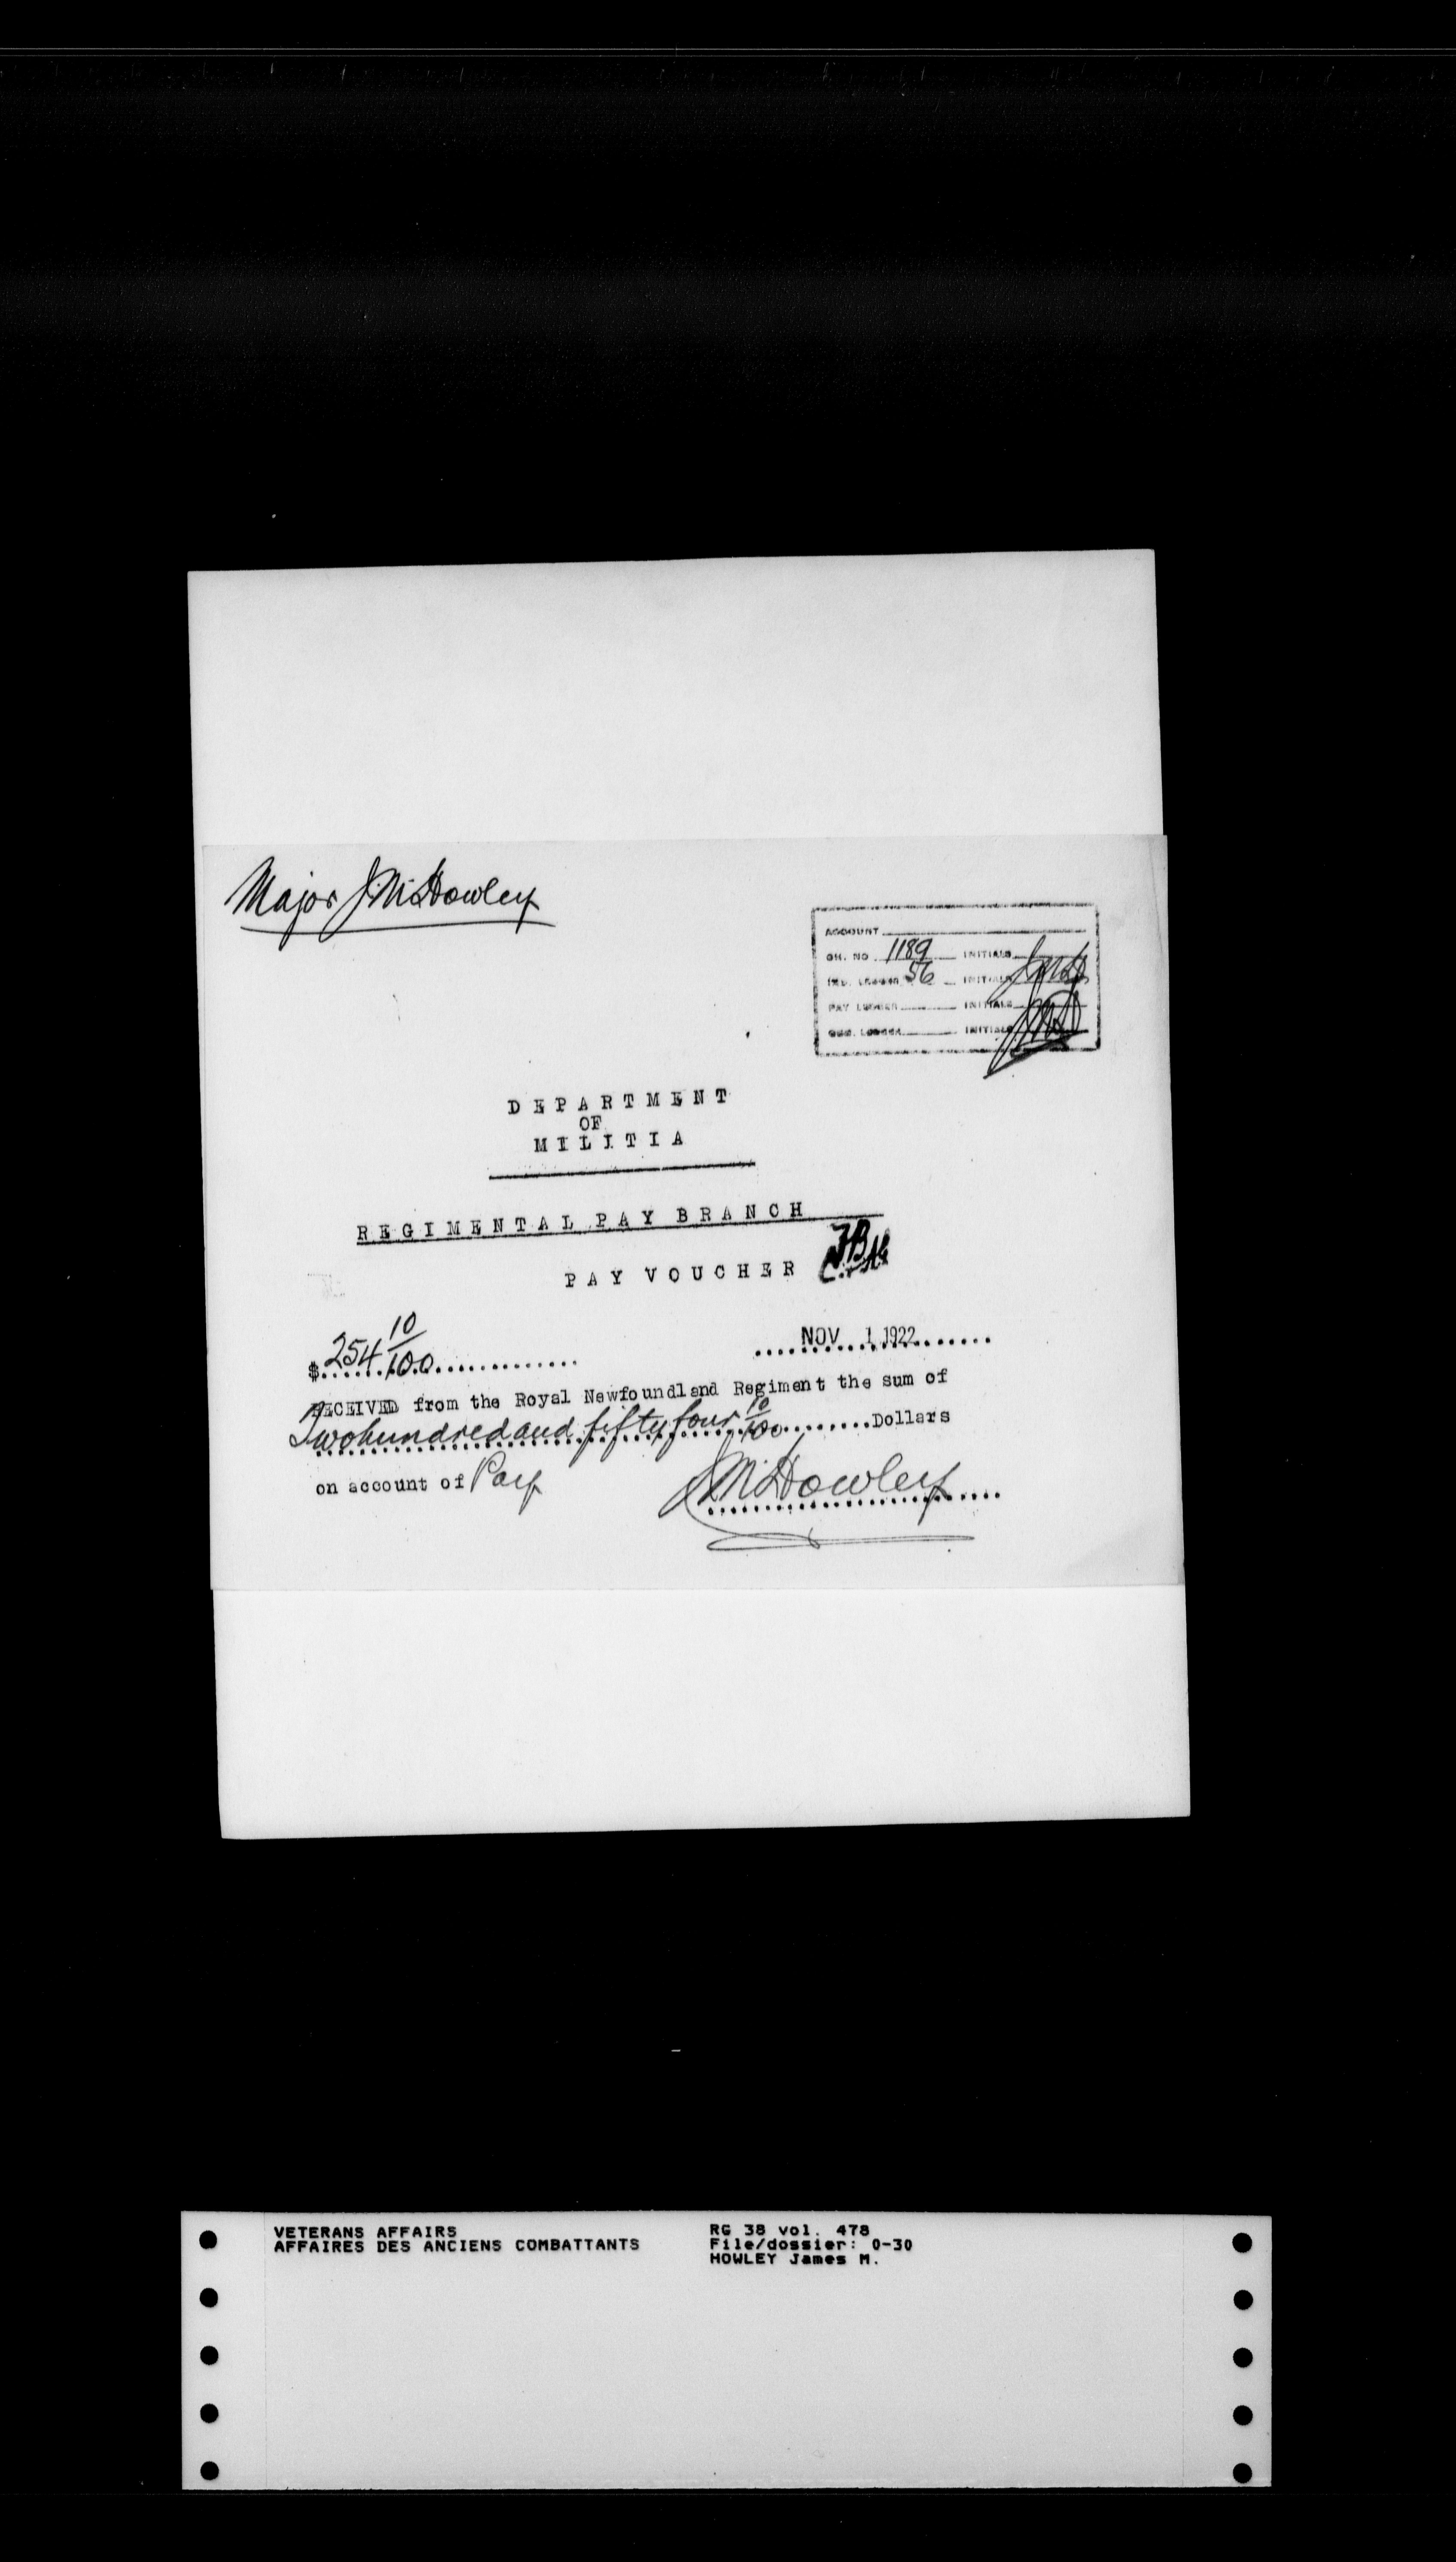 Major J.M. Howley
ACCOUNT
CH. NO 1189 INITIALS JMH
IND. LEDGER 56 INITIALS
PAY LEDGER INITIALS
GEN. LEDGER INITIALS
DEPARTMENT
OF
MILITIA
REGIMENTAL PAY BRANCH
PAY VOUCHER
$254 10/100
NOV 1 1922
RECEIVED from the Royal Newfoundland Regiment the sum of
Two hundred and fifty four 10/100 Dollars
on account of Pay
J.M. Howley
VETERANS AFFAIRS
AFFAIRES DES ANCIENS COMBATTANTS
RG 38 vol. 478
File/dossier: 0-30
HOWLEY James M.